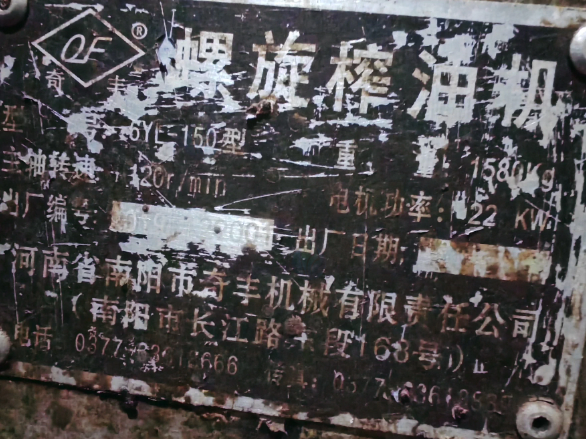 QF ® 螺旋榨油机
奇丰
型号 6YL-150型 重量 1580Kg
主轴转速 120r/min 电机功率: 22 KW
出厂编号 出厂日期:
河南省南阳市奇丰机械有限责任公司
(南阳市长江路 段168号)
电话: 0377 传真: 0377